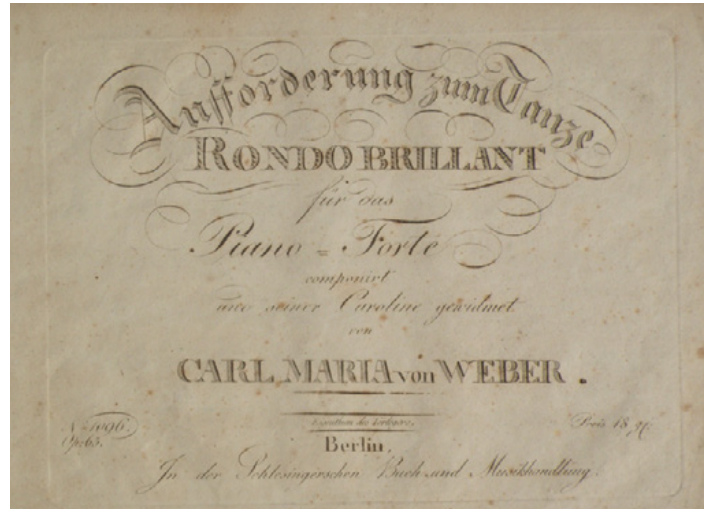 Aufforderung zum Tanze
RONDO BRILLANT
für das
Piano=Forte
componirt
und seiner Caroline gewidmet
von
CARL MARIA von WEBER.
Eigenthum des Verlegers.
No. 1096.
Op: 65.
Preis 18 gr.
Berlin,
In der Schlesingerschen Buch und Musikhandlung.